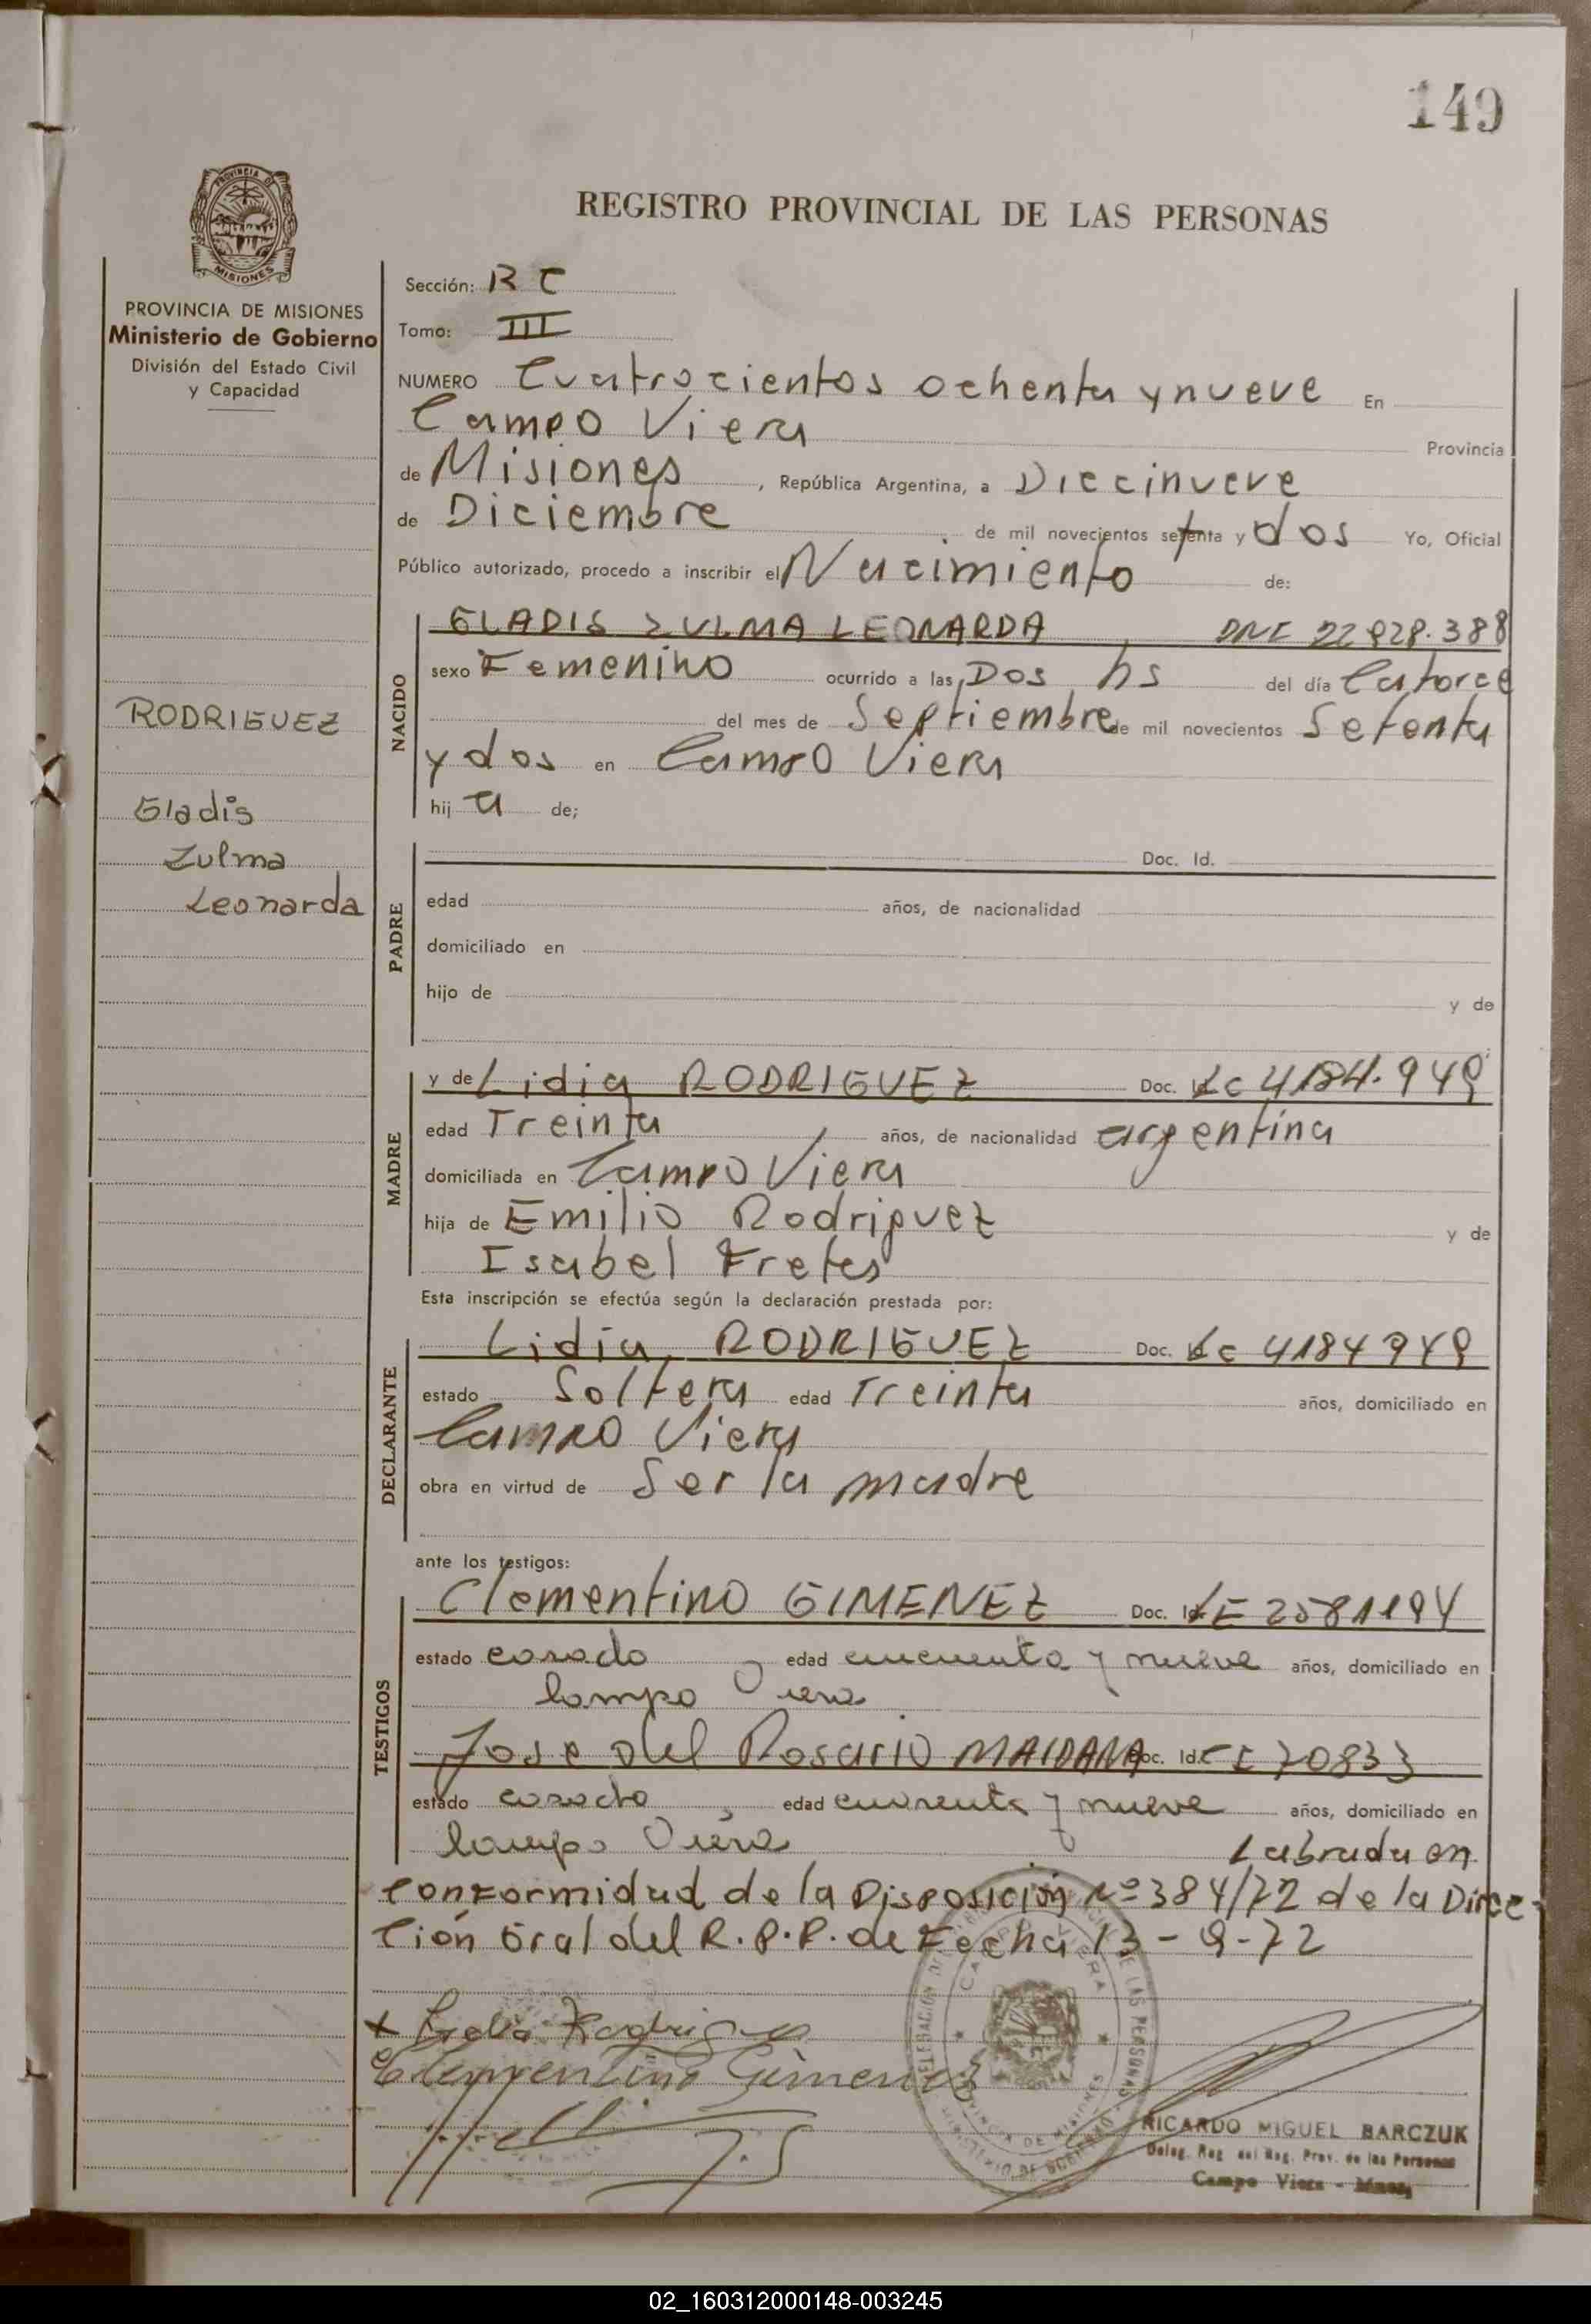 149
REGISTRO PROVINCIAL DE LAS PERSONAS
PROVINCIA DE MISIONES
Ministerio de Gobierno
División del Estado Civil
y Capacidad
RODRIGUEZ
Gladis
Zulma
Leonarda
Sección: RC
Tomo: III
NUMERO Cuatrocientos ochenta y nueve En
Campo Viera Provincia
de Misiones, República Argentina, a Diecinueve
de Diciembre de mil novecientos setenta y dos Yo, Oficial
Público autorizado, procedo a inscribir el Nacimiento de:
NACIDO
GLADIS ZULMA LEONARDA DNI 22.828.388
sexo Femenino ocurrido a las Dos hs del día Catorce
del mes de Septiembre de mil novecientos Setenta
y dos en Campo Viera
hij a de;
PADRE
Doc. Id.
edad años, de nacionalidad
domiciliado en
hijo de y de
MADRE
y de Lidia RODRIGUEZ Doc. Id. LC 4184.949
edad Treinta años, de nacionalidad argentina
domiciliada en Campo Viera
hija de Emilio Rodriguez y de
Isabel Fretes
Esta inscripción se efectúa según la declaración prestada por:
DECLARANTE
Lidia RODRIGUEZ Doc. Id. LC 4184949
estado Soltera edad Treinta años, domiciliado en
Campo Viera
obra en virtud de Ser la madre
ante los testigos:
TESTIGOS
Clementino GIMENEZ Doc. Id. LE 2581194
estado casado edad cincuenta y nueve años, domiciliado en
Campo Viera
Jose del Rosario MAIDANA Doc. Id. CI 70833
estado casado, edad cuarenta y nueve años, domiciliado en
Campo Viera Labrada en
conformidad de la Disposición Nº 384/72 de la Direc-
ción Gral del R.P.P. de Fecha 13-9-72
x Lidia Rodriguez
Clementino Gimenez
CAMPO VIERA
PROVINCIA DE MISIONES
MINISTERIO DE GOBIERNO
RICARDO MIGUEL BARCZUK
Deleg. Reg. del Reg. Prov. de las Personas
Campo Viera - Mnes.
02_160312000148-003245